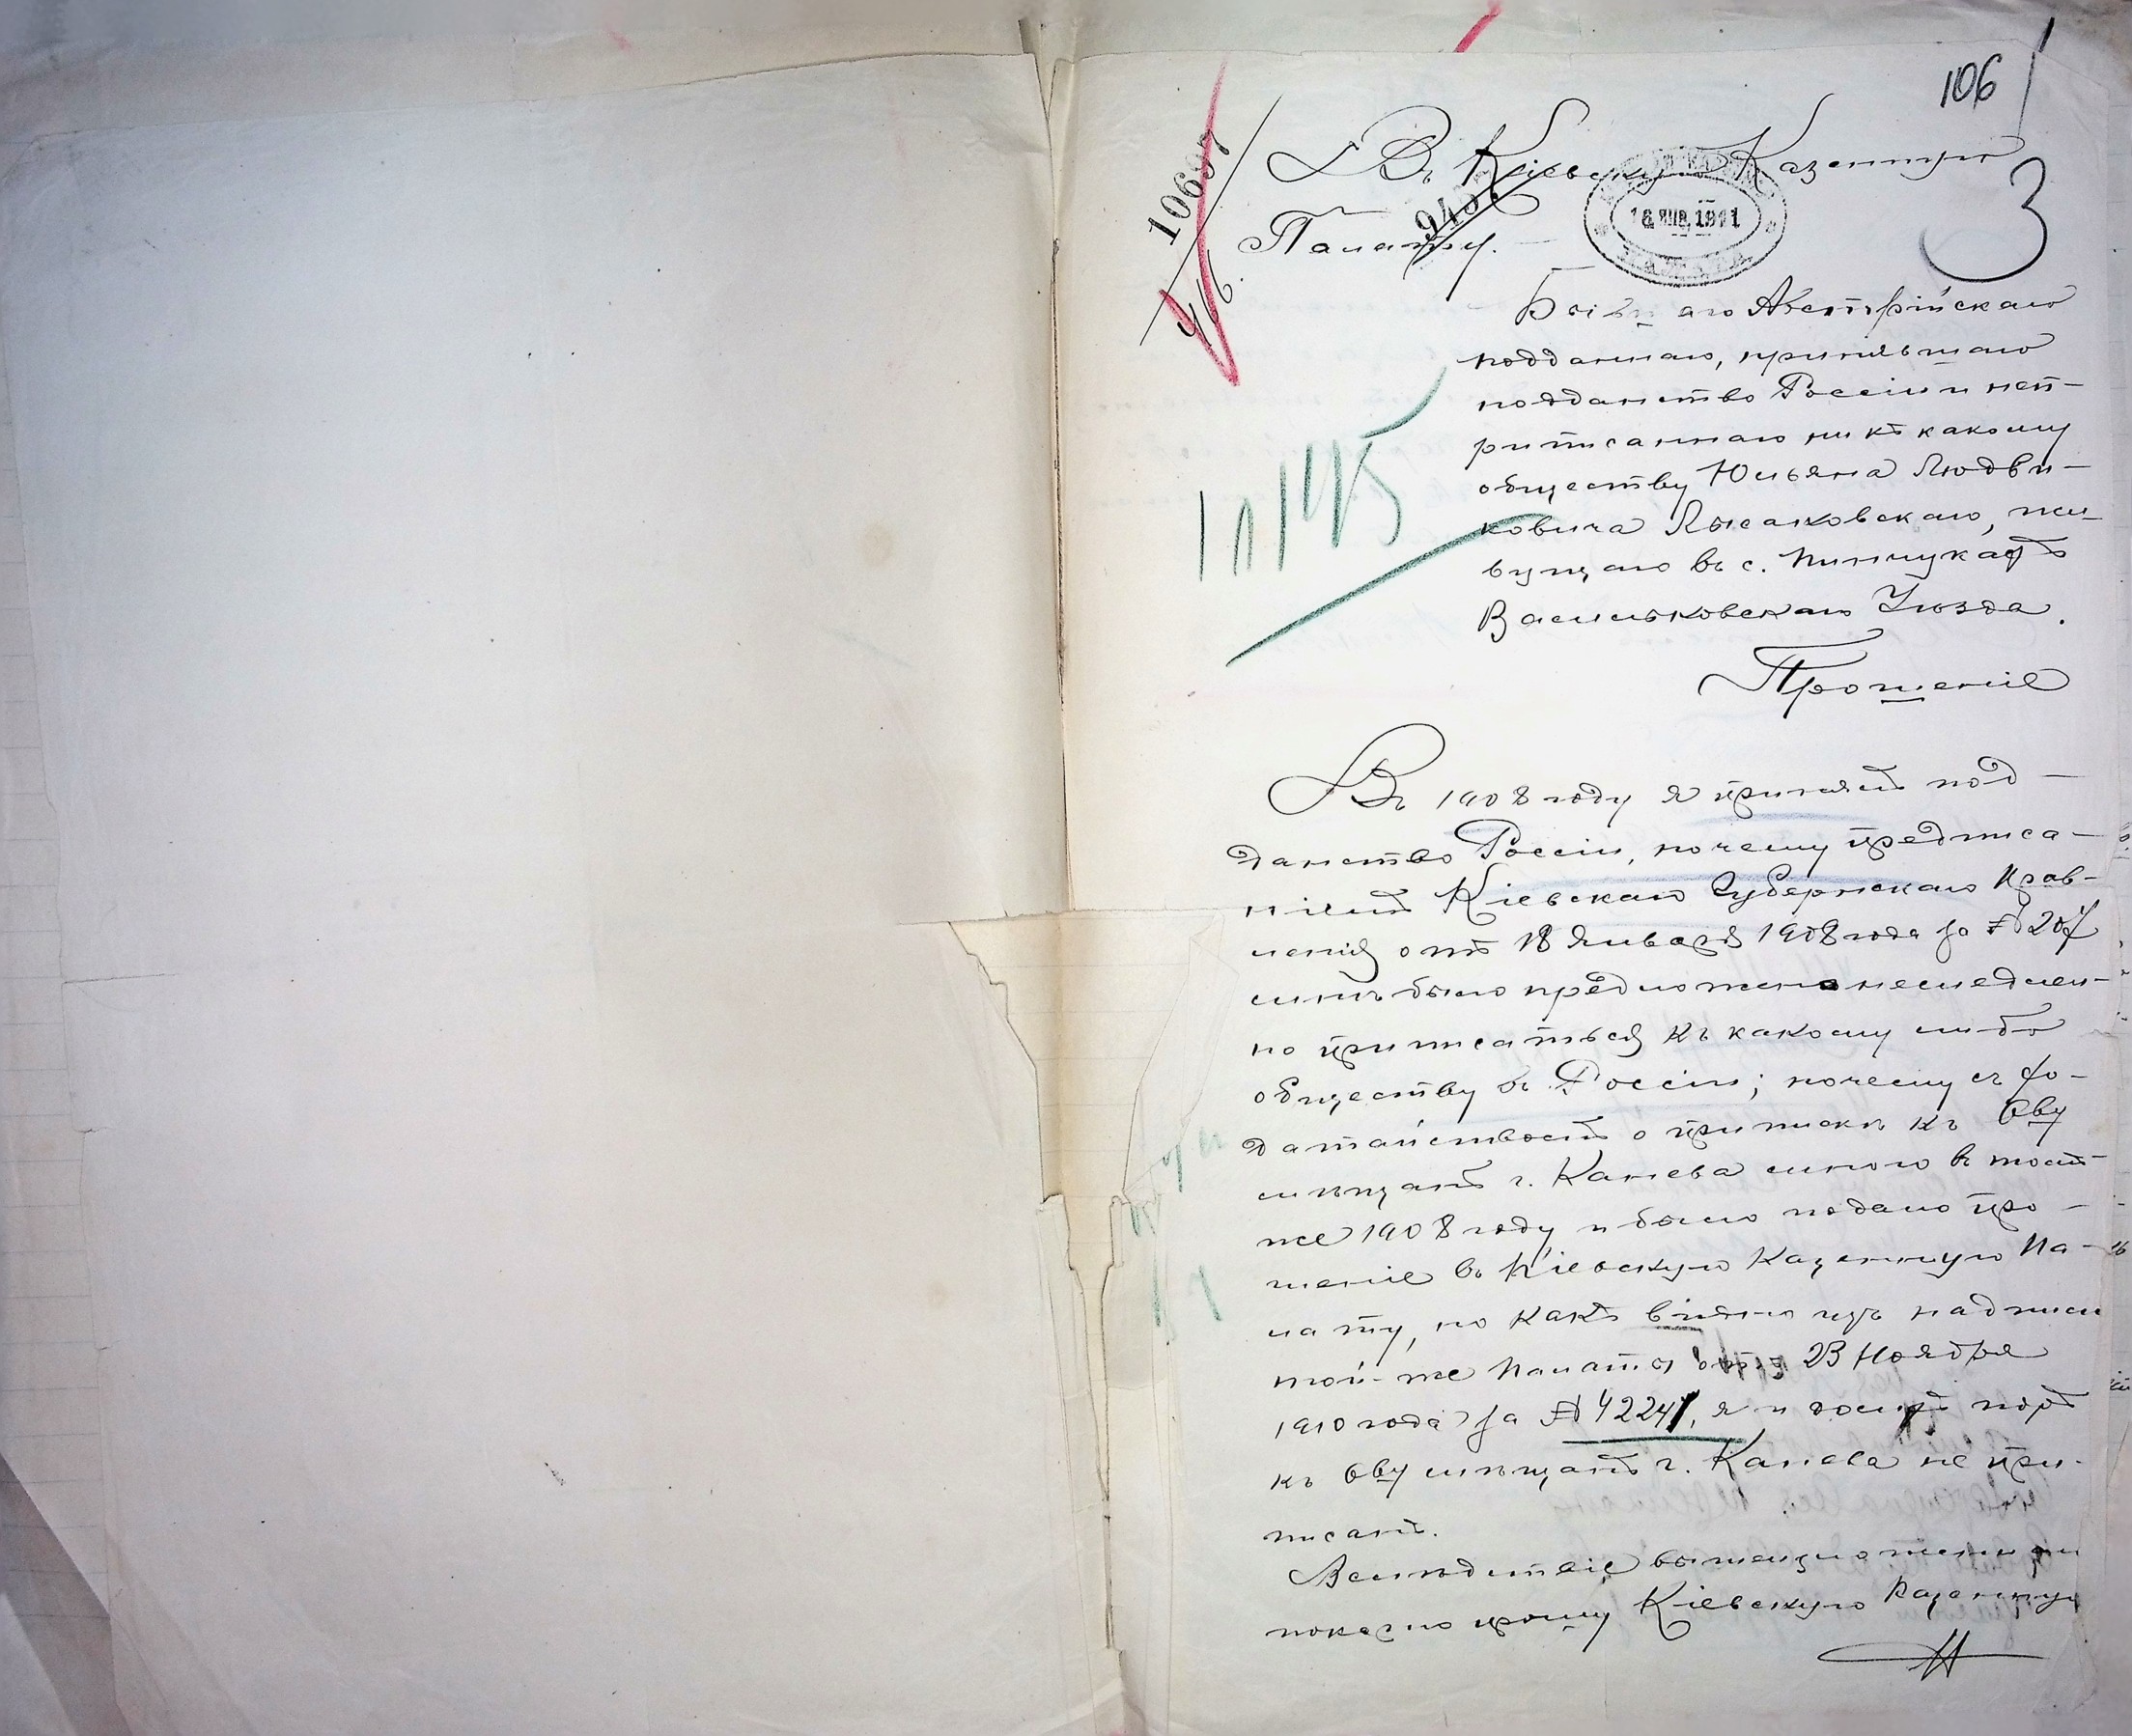 106
10697
Въ Кіевскую Казенную
3
Палату.
16 ЯНВ. 1911
Бывшаго Австрійскаго
подданнаго, принявшаго
подданство Россіи и неп-
риписаннаго ни къ какому
обществу Юльяна Людви-
ковича Лысаковскаго, жи-
вущаго въ с. Пинчукахъ
Васильковскаго Уѣзда.
Прошеніе
Въ 1908 году я принялъ под-
данство Россіи, почему предписа-
ніемъ Кіевскаго Губернскаго Прав-
ленія отъ 18 Января 1908 года за № 207
мнѣ было предложено немедлен-
но приписаться къ какому либо
обществу въ Россіи; почему съ хо-
датайствомъ о припискѣ къ Обву
мѣщанъ г. Канева мною въ томъ-
же 1908 году и было подано про-
шеніе въ Кіевскую Казенную Па-
лату, но какъ видно изъ надписи
той-же Палаты отъ 23 Ноября
1910 года за № 42241, я и до сихъ поръ
къ Обву мѣщанъ г. Канева не при-
писанъ.
Вслѣдствіе вышеизложеннаго
покорно прошу Кіевскую Казенную